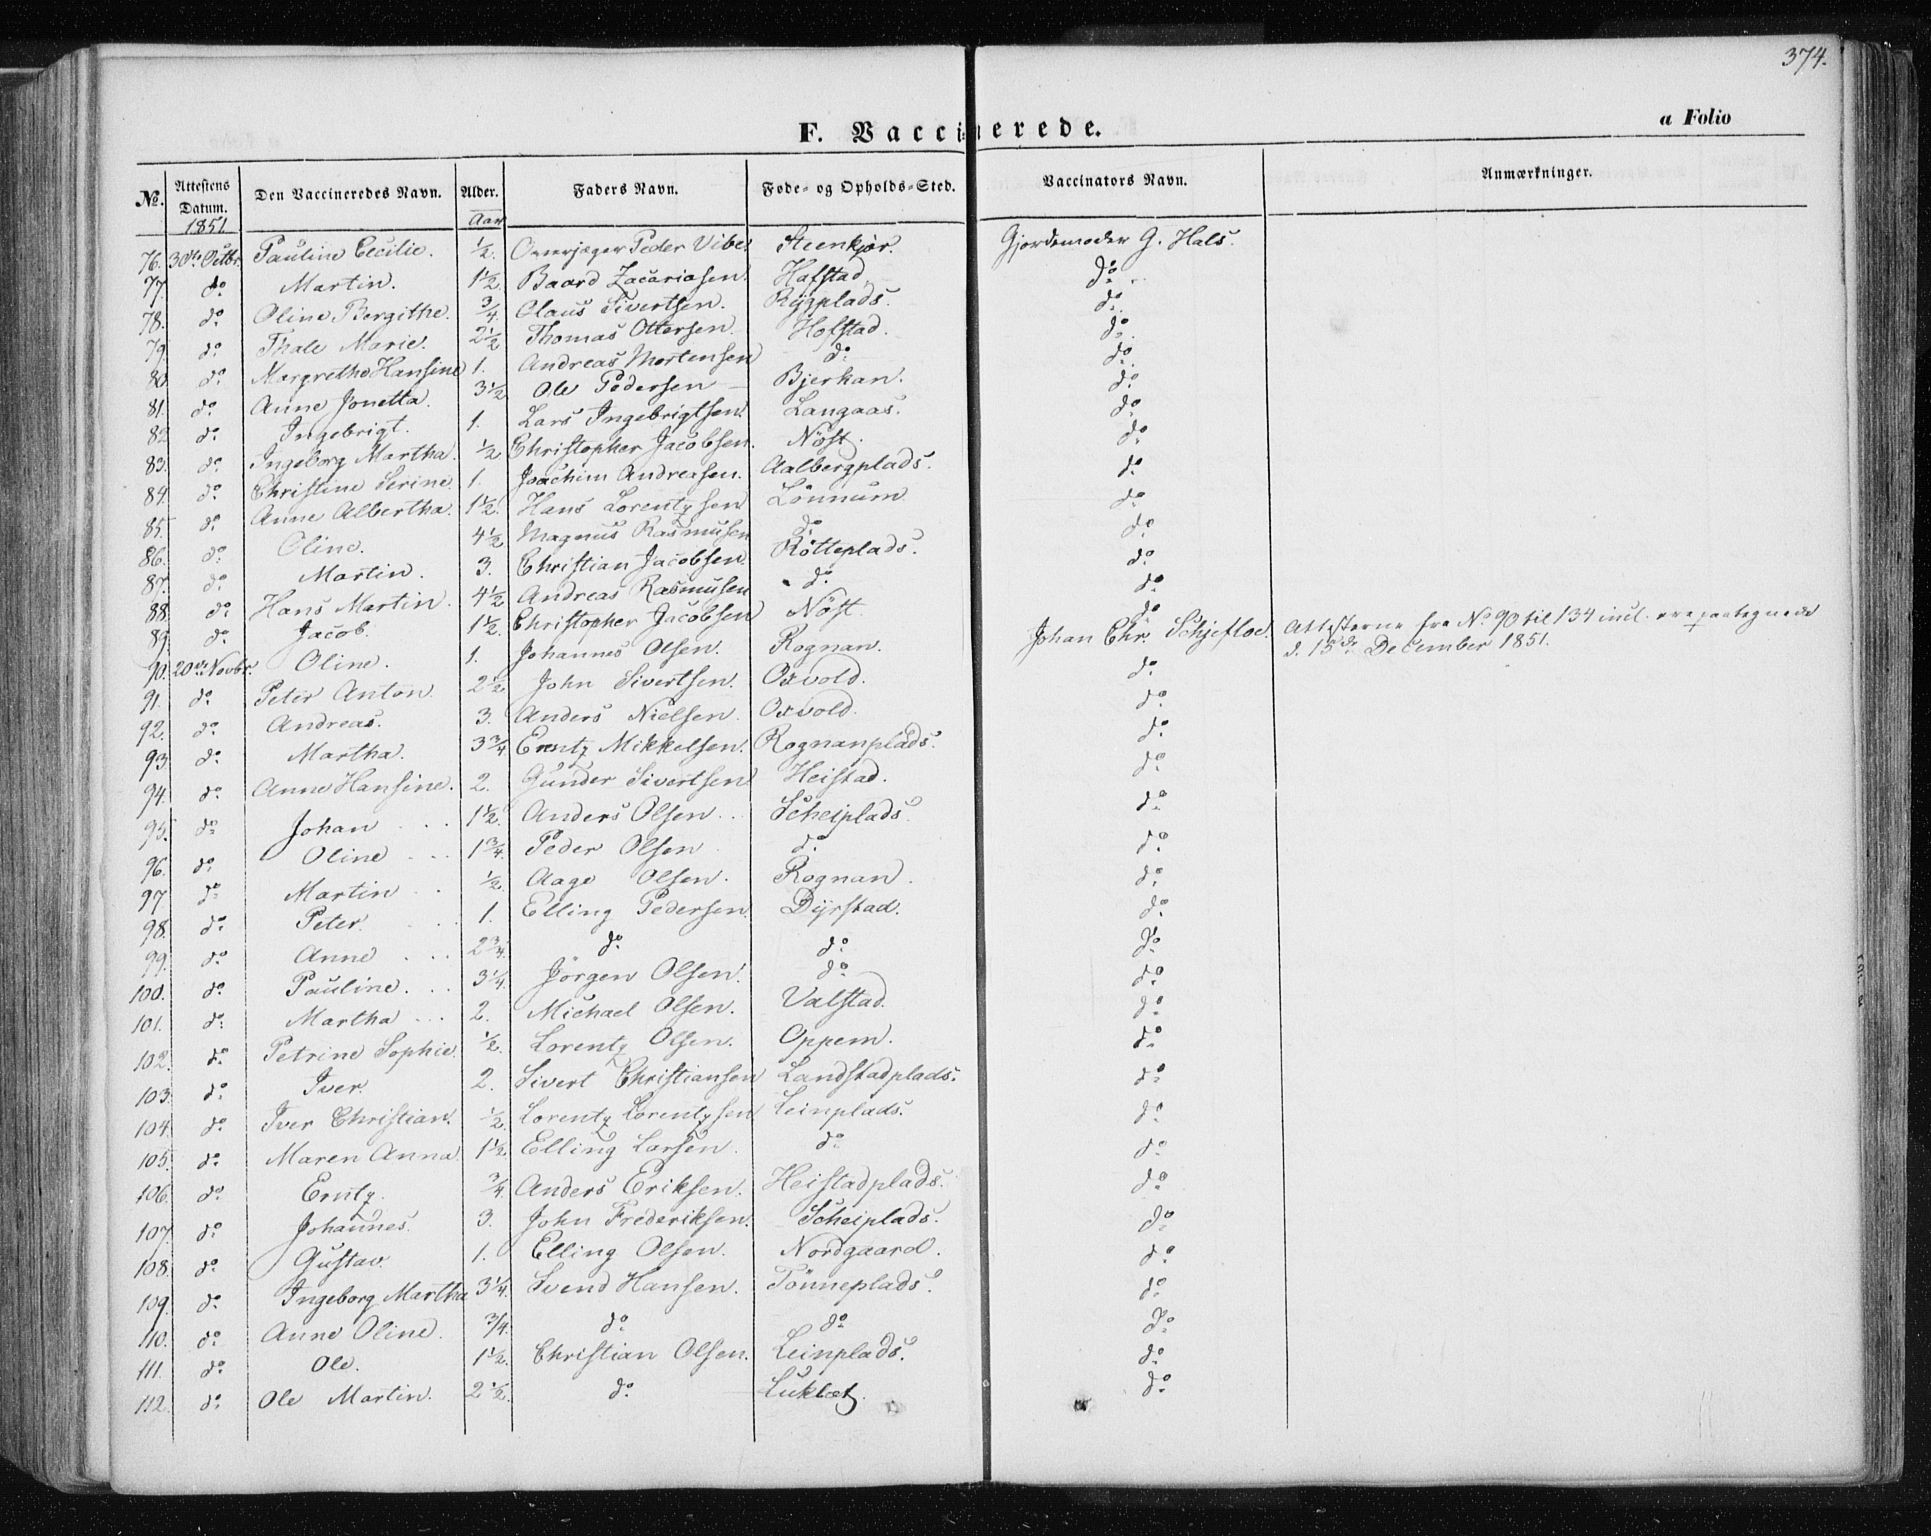 374.
F. Vaccinerede.
a Folio
No. Attestens Datum. Den Vaccineredes Navn. Alder. Faders Navn. Føde- og Opholds-Sted. Vaccinators Navn. Anmærkninger.
1851 Aar
76. 30te Octbr. Pauline Cecilie. 1/2. Overjæger Peder Vibe. Steenkjær. Gjordemoder G. Hals.
77. do Martin. 1 1/2. Baard Zacariasen. Hafstad do
78. do Oline Bergithe. 3/4. Olaus Sivertsen. Rygplads. do
79. do Thale Marie. 2 1/2 Thomas Ottersen Hofstad. do
80. do Margrethe Hansine 1. Andreas Mortensen do do
81. do Anne Jonetta. 3 1/2 Ole Pedersen Bjerkan. do
82 do Ingebrigt. 1. Lars Ingebrigtsen. Langaas. do
83. do Ingeborg Martha. 1/2 Christopher Jacobsen. Nöst. do
84. do Christine Serine. 1. Joachim Andreasen. Aalbergplads. do
85. do Anne Albertha. 1 1/2. Hans Lorentzsen Lönnum do
86. do Oline. 4 1/2 Magnus Rasmusen do do
87. do Martin. 3. Christian Jacobsen. Rötteplads. do
88. do Hans Martin. 4 1/2 Andreas Rasmusen do do
89. do Jacob. 1 1/2. Christopher Jacobsen Nöst do
90. 20de Novbr. Oline. 1. Johannes Olsen. Rognan. Johan Chr. Schjefloe. Attesterne fra No 90 til 134 incl. ere paategnede
d. 15de December 1851.
91. do Peter Anton. 2 1/2 John Sivertsen. Oxvold. do
92. do Andreas. 3. Anders Nielsen. Oxvold. do
93. do Martha. 3 3/4 Erntz Mikkelsen. Rognanplads. do
94. do Anne Hansine. 2. Gunder Sivertsen Heistad. do
95. do Johan 1 1/2. Anders Olsen. Scheiplads. do
96. do Oline 1 3/4. Peder Olsen do do
97 do Martin 1/2. Aage Olsen. Rognan. do
98. do Peter. 1. Elling Pedersen. Dyrstad. do
99. do Anne 2 3/4. do do do
100. do Pauline. 3 1/4. Jörgen Olsen. do do
101. do Martha 2. Michael Olsen. Valstad. do
102. do Petrine Sophie. 1/2. Lorentz Olsen. Oppem. do
103. do Iver. 2. Sivert Christiansen Landstadplads. do
104. do Iver Christian. 1/2. Lorentz Lorentzsen Leinplads. do
105. do Maren Anna. 1 1/2 Elling Larsen. do do
106. do Erntz. 3/4. Anders Eriksen. Heistadplads. do
107. do Johannes. 3. John Frederiksen. Scheiplads. do
108. do Gustav. 1. Elling Olsen. Nordgaard. do
109. do Ingeborg Martha 3 1/4. Svend Hansen. Tönneplads. do
110. do Anne Oline. 3/4. do do do
111. do Ole. 1 1/2. Christian Olsen. Leinplads. do
112. do Ole Martin. 2 1/2. do do